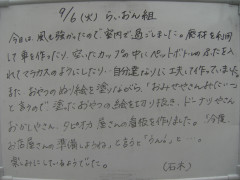 9/6(火) らいおん組
今日は、風も強かったので室内で過ごしました。廃材を利用
して車を作ったり、空いたカップの中にペットボトルのふたを入
れてマラカスのようにしたり…自分達なりに工夫して作っていました。
また、おやつのぬり絵を塗りながら、「おみせやさんみたい」
と言うので、塗ったおやつの絵を切り抜き、ドーナツやさん
おかしやさん、タピオカ屋さんの看板を作りました。「今度、
お店屋さんの準備しようね」と言うと「うん!」と…。
楽しみにしているようでした。 (石木)